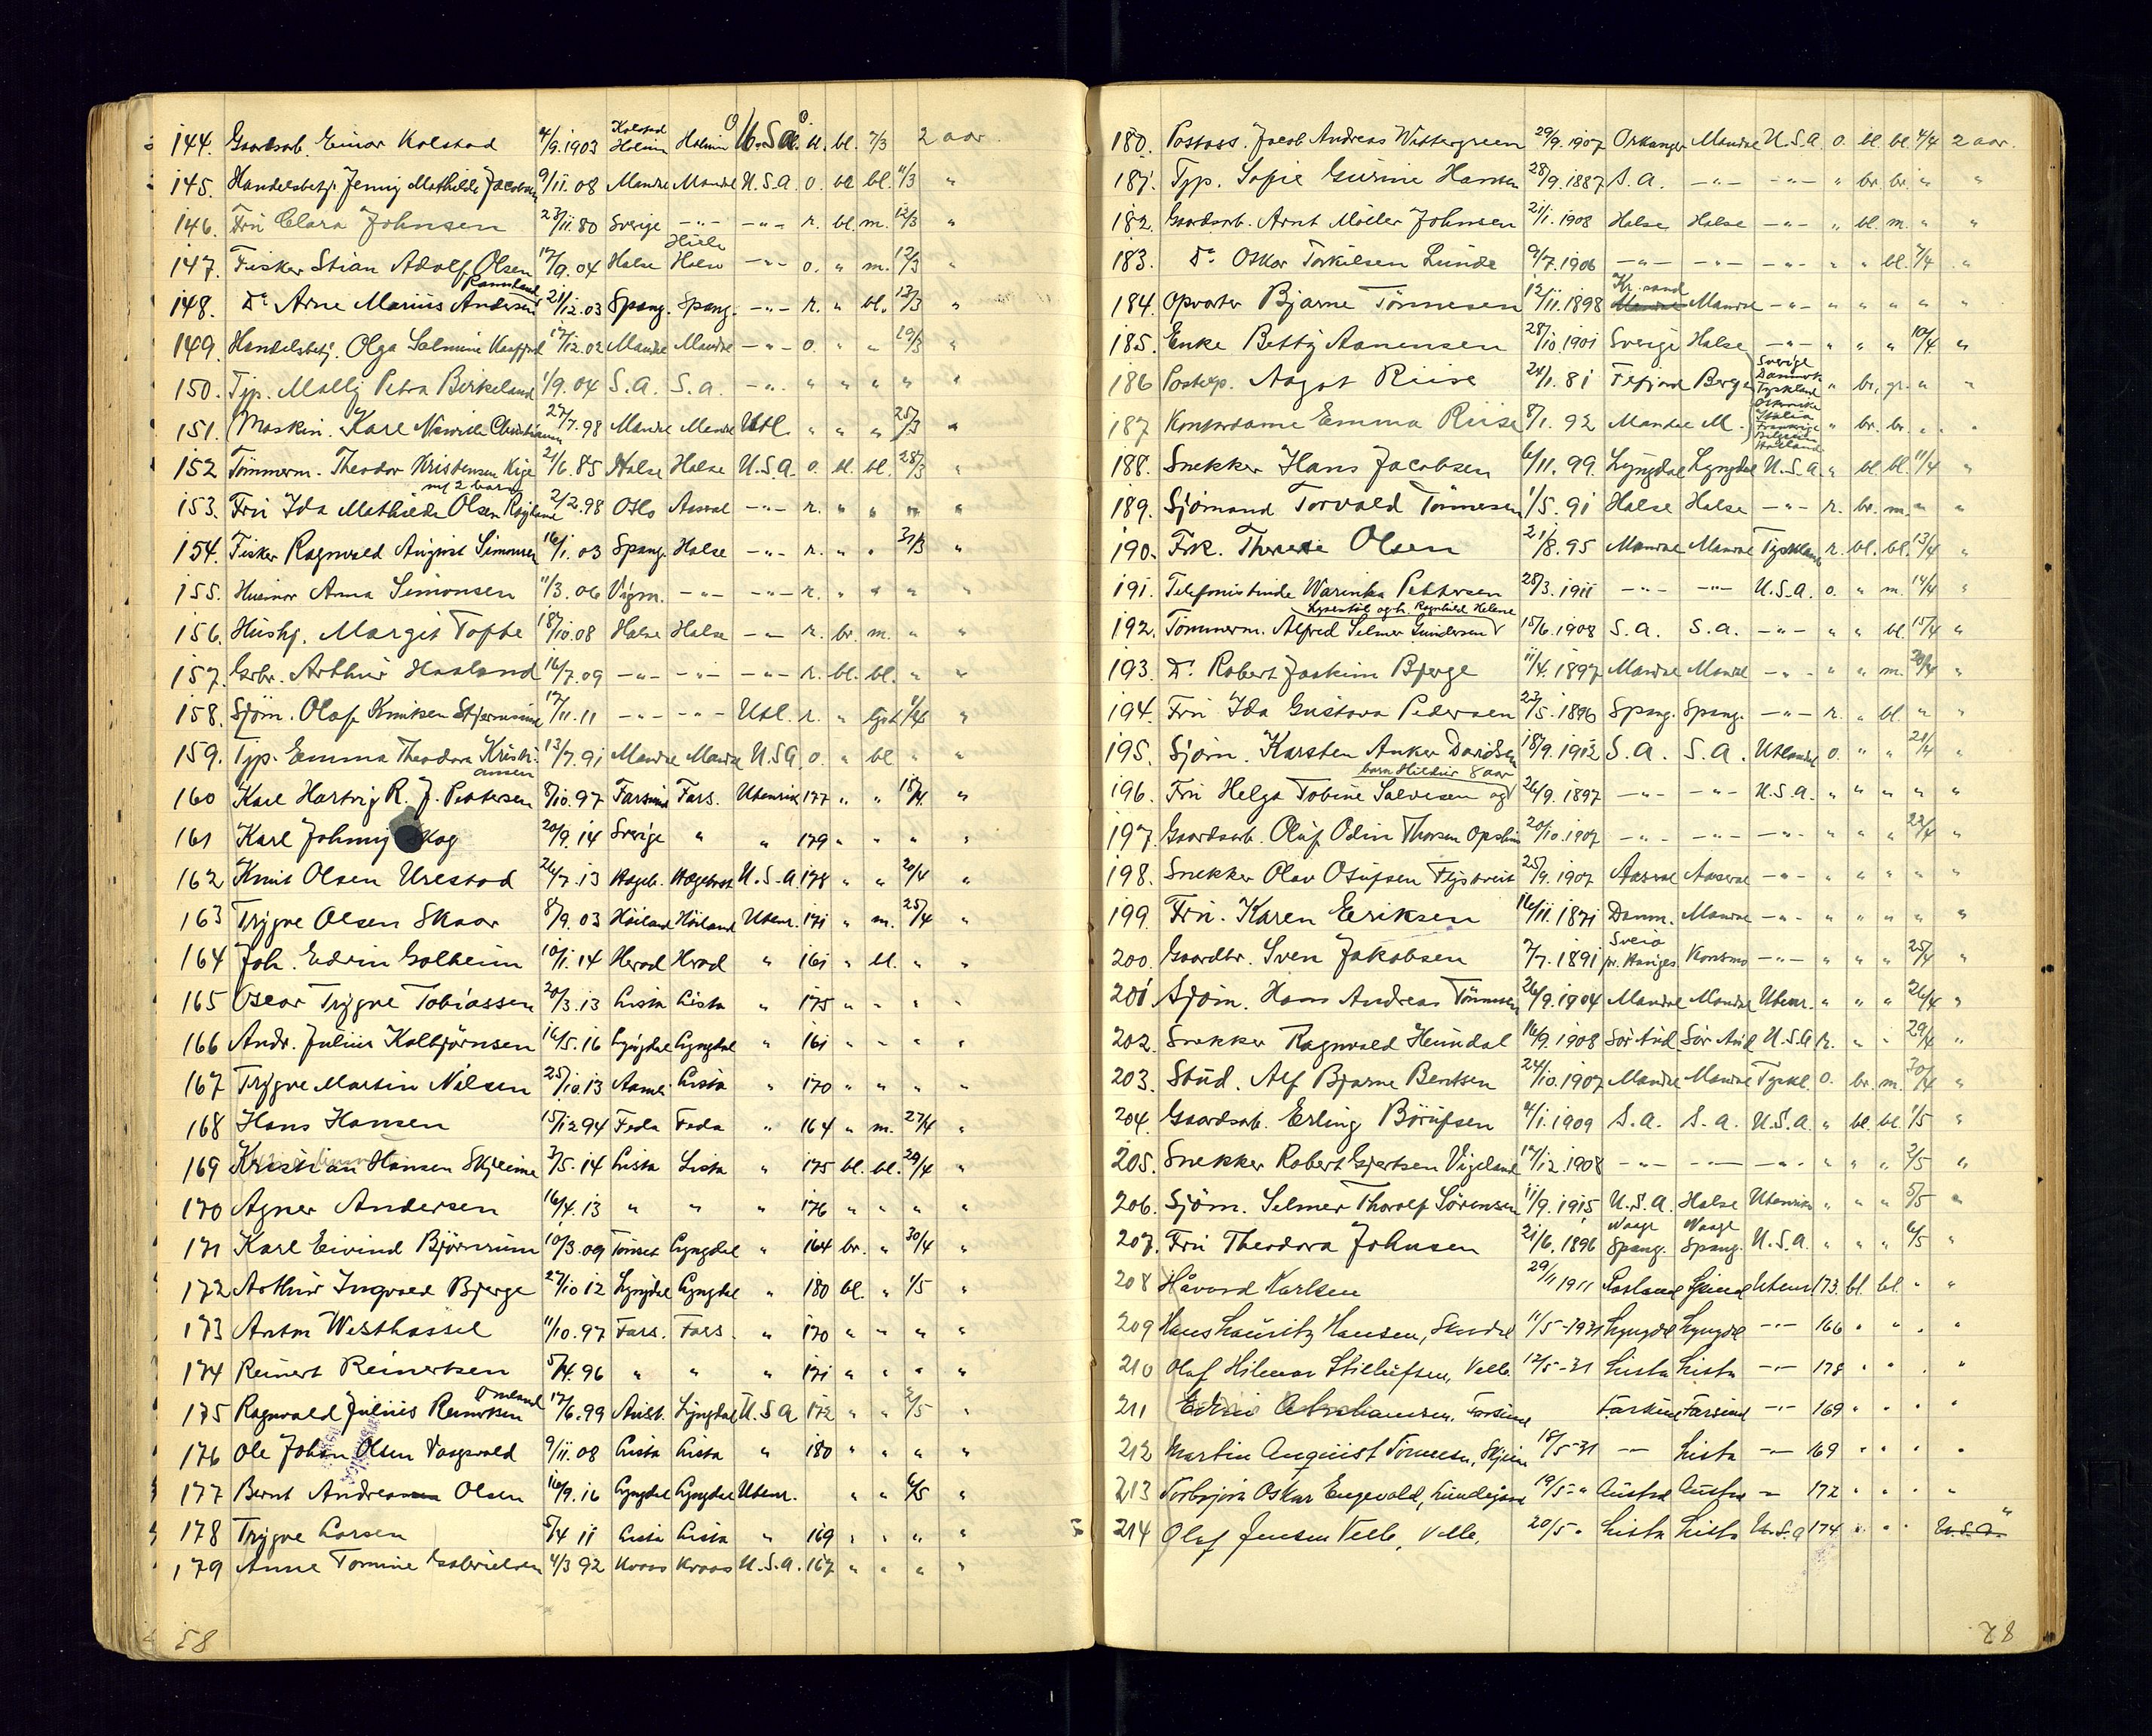 144. Gaardsarb. Einar Kolstad 4/9.1903 Kolstad Holum Holum U.S.A. o. bl. bl. 7/3 2 aar
145. Handelsbetj. Jenny Mathilde Jacobsen 9/11.08 Mandal Mandal U.S.A. o. bl. bl. 11/3 "
146. Fru Clara Johnsen 23/11.80 Sverige -"- -"- r. bl. m. 12/3 "
147. Fisker Stian Adolf Olsen 17/9.04 Halse Halse -"- o. " m. 12/3 "
148. Do Arne Marius Andersen 21/12.03 Spang. Spang. -"- r. " bl. 13/3 "
149. Handelsbetj. Olga Salmine 17/12.02 Mandal Mandal -"- o. " " 19/3 "
150. Typ. Mally Petra Birkeland 1/9.04 S.A. S.A. -"- " " " " "
151. Maskin. Karl 27/7.98 Mandal Mandal Utl. " " " 25/3 "
152 Tömmerm. Theodor Kristensen Kige 21/6.85 Halse Halse U.S.A. o. bl. bl. 28/3 "
m/ 2 barn
153. Fru Ida Mathilde Olsen 2/2.98 Oslo Aaseral -"- r. " " " "
154. Fisker Ragnvald August Simonsen 16/1.03 Spang. Halse -"- r. " " 31/3 "
155. Husmor Anna Simonsen 11/3.06 Vigm. -"- -"- r. " " " "
156. Hushj. Margit Tofte 18/10.08 Halse Halse -"- r. br. m. " "
157. Grbr. Arthur Haaland 16/7.09 -"- -"- -"- r. bl. bl. " "
158. Sjöm. Olaf Knutsen 17/11.11 -"- -"- Utl. r. " 1/4 "
159. Typ. Emma Theodora Kristiansen 13/7.91 Mandal Mandal U.S.A. o. " bl " "
160 Karl Hartvig R. J. Pettersen 8/10.97 Farsund Fars. Utenriks 177 " " 18/4 "
161 Karl Johnny Skog 20/9.14 Sverige " " 179 " " " "
162 Knut Olsen Urestad 26/7.13 Hægeb. Hægebost U.S.A. 178 " " 20/4 "
163 Trygve Olsen Skaar 8/9.03 Höiland Höiland Utenr. 171 " m. 25/4 "
164 Joh. Edvin Golheim 10/1.14 Herad Hrad " 161 " bl. " "
165 Oscar Trygve Tobiassen 20/3.13 Lista Lista " 175 " " " "
166 Andr. Julius Kalbjörnsen 16/5.16 Lyngdal Lyngdal " 161 " " " "
167 Trygve Martin Nilsen 25/10.13 Lista " 170 " " " "
168 Hans Hansen 15/12 94 Feda Feda " 164 " m. 27/4 "
169 Kristian Hansen Skjeime 3/5.14 Lista Lista " 175 bl. bl. 29/4 "
170 Agner Andersen 16/4.13 " " " 176 " " " "
171 Karl Eivind Bjørnrum 10/3.09 Lyngdal " 164 br. " 30/4 "
172 Arthur Ingvald Bjerge 27/10 12 Lyngdal Lyngdal " 180 bl. " 1/5 "
173 Anton Westhassel 11/10.97 Fars. Fars. " 170 " " " "
174 Reinert Reinertsen 5/4.96 " " " 171 " " " "
175 Ragnvald Julius Reinertsen Omland 17/6.99 Aust. Lyngdal U.S.A 172 " " 2/5 "
176 Ole Johan Olsen Vaagsvold 9/11.08 Lista Lista " 180 " " " "
177 Bernt Andreas Olsen 16/9.16 Lyngdal Lyngdal Utenr. " " 6/5 "
178 Trygve Larsen 5/4 11 Lista Lista " 169 " " " "
179 Anne Tomine Gabrielsen 4/3 92 Kvaas Kvaas U.S.A. 167 " " " "
58
180. Postass. Jacob Andreas Wittergreen 29/9.1907 Orkanger Mandal U.S.A. o. bl. bl. 4/4 2 aar.
181. Typ. Sofie Gurine Hansen 28/9.1887 S.A. -"- -"- " br. br. " "
182. Gaardsarb. Arnt Möller Johnsen 21/1.1908 Halse Halse -"- " bl. m. " "
183. Do Oskar Torkilsen Lunde 9/7.1906 -"- -"- -"- " " bl. 7/4 "
184. Opvarter Bjarne Tönnesen 12/11.1898 Kr.sand Mandal Mandal -"- " " " " "
185. Enke Betty Aanensen 28/10.1901 Sverige Halse -"- " " " 10/4 "
186 Postexp. Aagot Riise 24/1.81 Berge Sverige Danmark Tyskland " br. gr. " "
187 Kontordame Emma Riise 8/1.92 Mandal M. Østerrike Italia Frankrige Belgien Holland " br. br. " "
188. Snekker Hans Jacobsen 6/11.99. Lyngdal Lyngdal U.S.A. " bl bl. 11/4 "
189. Sjömand Torvald Tönnesen 1/5.91 Halse Halse -"- r. br. m. " "
190. Frk. Therese Olsen 21/8.95 Mandal Mandal Tyskland r. bl. bl. 13/4 "
191. Telefonistinde Warinka Pettersen 28/3.1911 -"- -"- U.S.A. o. " m. 14/4 "
og h. Ragnhild Helene
192. Tömmerm. Alfred Selmer Gundersen 15/6.1908 S.A. S.A. -"- " " bl. 15/4 "
193. Do Robert Joakim Bjerge 11/4.1897 Mandal Mandal -"- " " m. 20/4 "
194. Fru Ida Gustava Pedersen 23/5.1896 Spang. Spang. -"- r. " bl. " "
195. Sjöm. Karsten Anker Davidsen 18/9.1912 S.A. S.A. Utlandet o. " " 21/4 "
barn Hildur 8 aar
196. Fru Helga Tobine Salvesen og 26/9.1897 -"- -"- U.S.A. " " " " "
197. Gaardsarb. Oluf Odin Thorsen 20/10.1907 -"- -"- -"- " " " 22/4 "
198. Snekker Olav Osufsen 25/9.1907 Aaseral Aaseral -"- " " " " "
199. Fru. Karen Eriksen 16/11.1871 Danm. Mandal -"- " " " " "
200. Gaardbr. Sven Jakobsen 7/7.1891 Sveio pr. Hauges. Konsmo -"- " " " 25/4 "
201 Sjöm. Hans Andreas Tönnesen 26/9.1904 Mandal Mandal Utenr. " " " 26/4 "
202. Snekker Ragnvald Heimdal 16/9.1908 Sör Aud. Sör Aud U.S.A r. " " 29/4 "
203. Stud. Alf Bjarne Bentsen 24/10.1907 Mandal Mandal Tyskl. o. br. m. 30/4 "
204. Gaardsarb. Erling Börufsen 4/1.1909 S.A. S.A. U.S.A. " bl. bl. 1/5 "
205. Snekker Robert Gjertsen Vigeland 17/12.1908 -"- -"- -"- " " " 2/5 "
206. Sjöm. Selmer Thoralf Sörensen 11/9.1915 U.S.A. Halse Utenriks " " " 5/5 "
207. Fru Theodora Johnsen 21/6.1896 Waage Spang. Waage Spang. U.S.A. " " " 6/5 "
208 Håvard Karlsen 29/11 1911 Spind Utenr 173. bl. bl. " "
209 Hans Lauritz Hansen, 11/5-1931 Lyngdal Lyngdal -"- 166 " " " "
210 Olaf Hilmar Velle 12/5-31 Lista Lista -"- 178 " " " "
211 Edvin Abrahamsen, Farsund Farsund Farsund -"- 169 " " " "
212 Martin August Tönnesen, 18/5-31 -"- Lista -"- 169 " " " "
213 Torbjørn Oskar Engevald, 19/5-" Austad Austad -"- 172 " " " "
214 Olaf Jensen Velle, Velle. 20/5-" Lista Lista U.S.A 174 " " " U.S.A. "